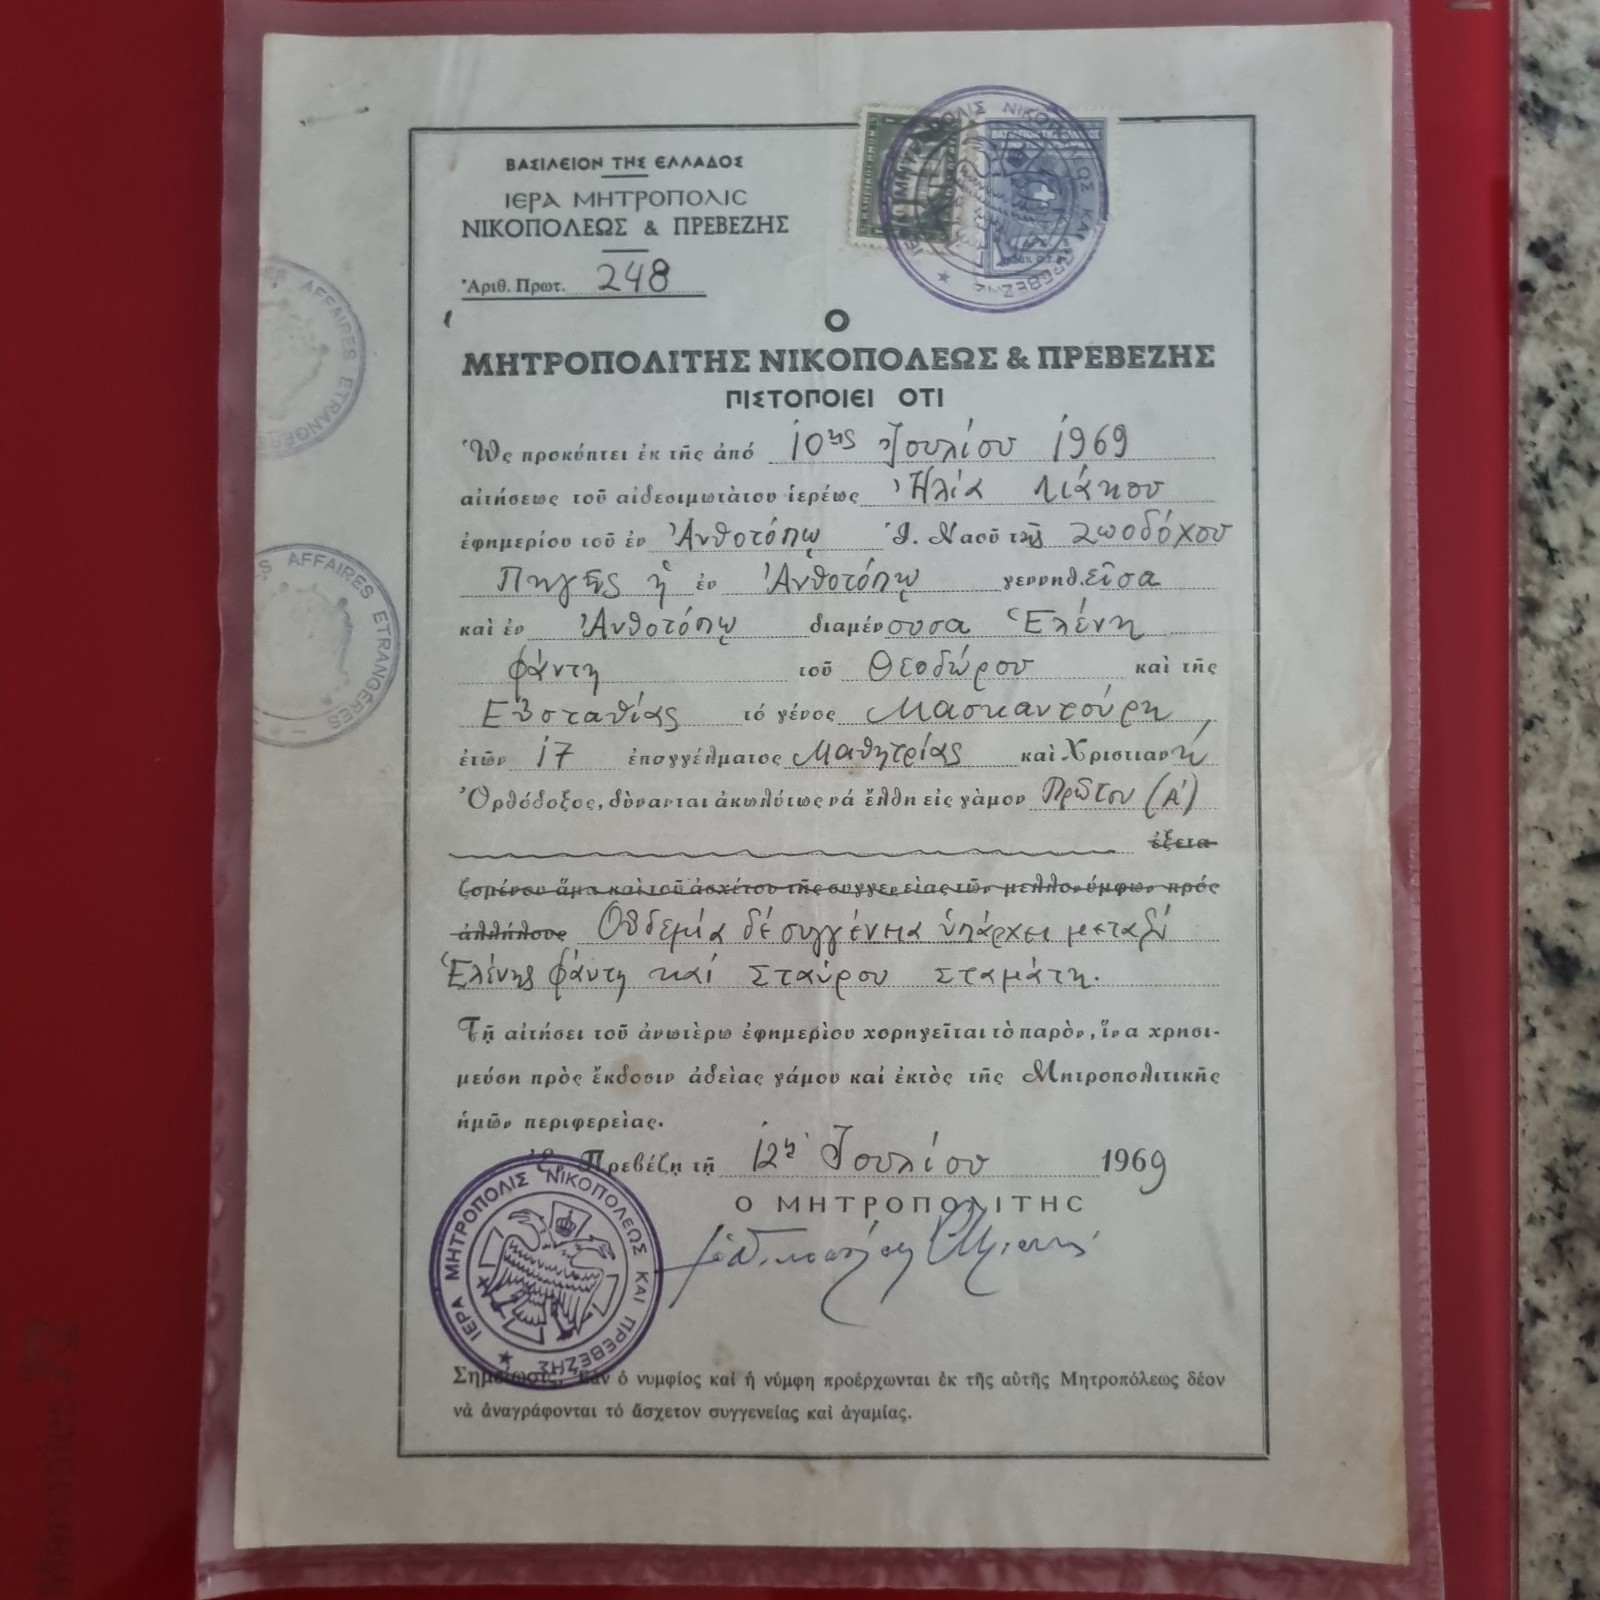 ΒΑΣΙΛΕΙΟΝ ΤΗΣ ΕΛΛΑΔΟΣ
ΙΕΡΑ ΜΗΤΡΟΠΟΛΙΣ
ΝΙΚΟΠΟΛΕΩΣ & ΠΡΕΒΕΖΗΣ
Ἀριθ. Πρωτ. 248
ΙΕΡΑ ΜΗΤΡΟΠΟΛΙΣ ΝΙΚΟΠΟΛΕΩΣ ΚΑΙ ΠΡΕΒΕΖΗΣ
AFFAIRES ETRANGÈRES
AFFAIRES ETRANGÈRES
Ο
ΜΗΤΡΟΠΟΛΙΤΗΣ ΝΙΚΟΠΟΛΕΩΣ & ΠΡΕΒΕΖΗΣ
ΠΙΣΤΟΠΟΙΕΙ ΟΤΙ
Ὡς προκύπτει ἐκ τῆς ἀπό 10ης Ἰουλίου 1969
αἰτήσεως τοῦ αἰδεσιμωτάτου ἱερέως Ἠλία Λιάκου
ἐφημερίου τοῦ ἐν Ἀνθοτόπῳ Ἱ. Ναοῦ τῆς Ζωοδόχου
Πηγῆς ἡ ἐν Ἀνθοτόπῳ γεννηθεῖσα
καὶ ἐν Ἀνθοτόπῳ διαμένουσα Ἑλένη
Φάντη τοῦ Θεοδώρου καὶ τῆς
Εὐσταθίας τό γένος Μασκαντούρη
ἐτῶν 17 ἐπαγγέλματος Μαθητρίας καὶ Χριστιανή
Ὀρθόδοξος, δύναται ἀκωλύτως νά ἔλθῃ εἰς γάμον Πρῶτον (Α')
ἐξετα-
ζομένου ἅμα καὶ τοῦ ἀσχέτου τῆς συγγενείας τῶν μελλονύμφων πρός
ἀλλήλους Οὐδεμία δέ συγγένεια ὑπάρχει μεταξύ
Ἑλένης Φάντη καί Σταύρου Σταμάτη.
Τῇ αἰτήσει τοῦ ἀνωτέρω ἐφημερίου χορηγεῖται τὸ παρὸν, ἵνα χρησι-
μεύσῃ πρὸς ἔκδοσιν ἀδείας γάμου καί ἐκτὸς τῆς Μητροπολιτικῆς
ἡμῶν περιφερείας.
Ἐν Πρεβέζῃ τῇ 12ῃ Ἰουλίου 1969
Ο ΜΗΤΡΟΠΟΛΙΤΗΣ
ΙΕΡΑ ΜΗΤΡΟΠΟΛΙΣ ΝΙΚΟΠΟΛΕΩΣ ΚΑΙ ΠΡΕΒΕΖΗΣ
Σημείωσις: Ἐὰν ὁ νυμφίος καί ἡ νύμφη προέρχωνται ἐκ τῆς αὐτῆς Μητροπόλεως δέον
νὰ ἀναγράφονται τό ἄσχετον συγγενείας καί ἀγαμίας.